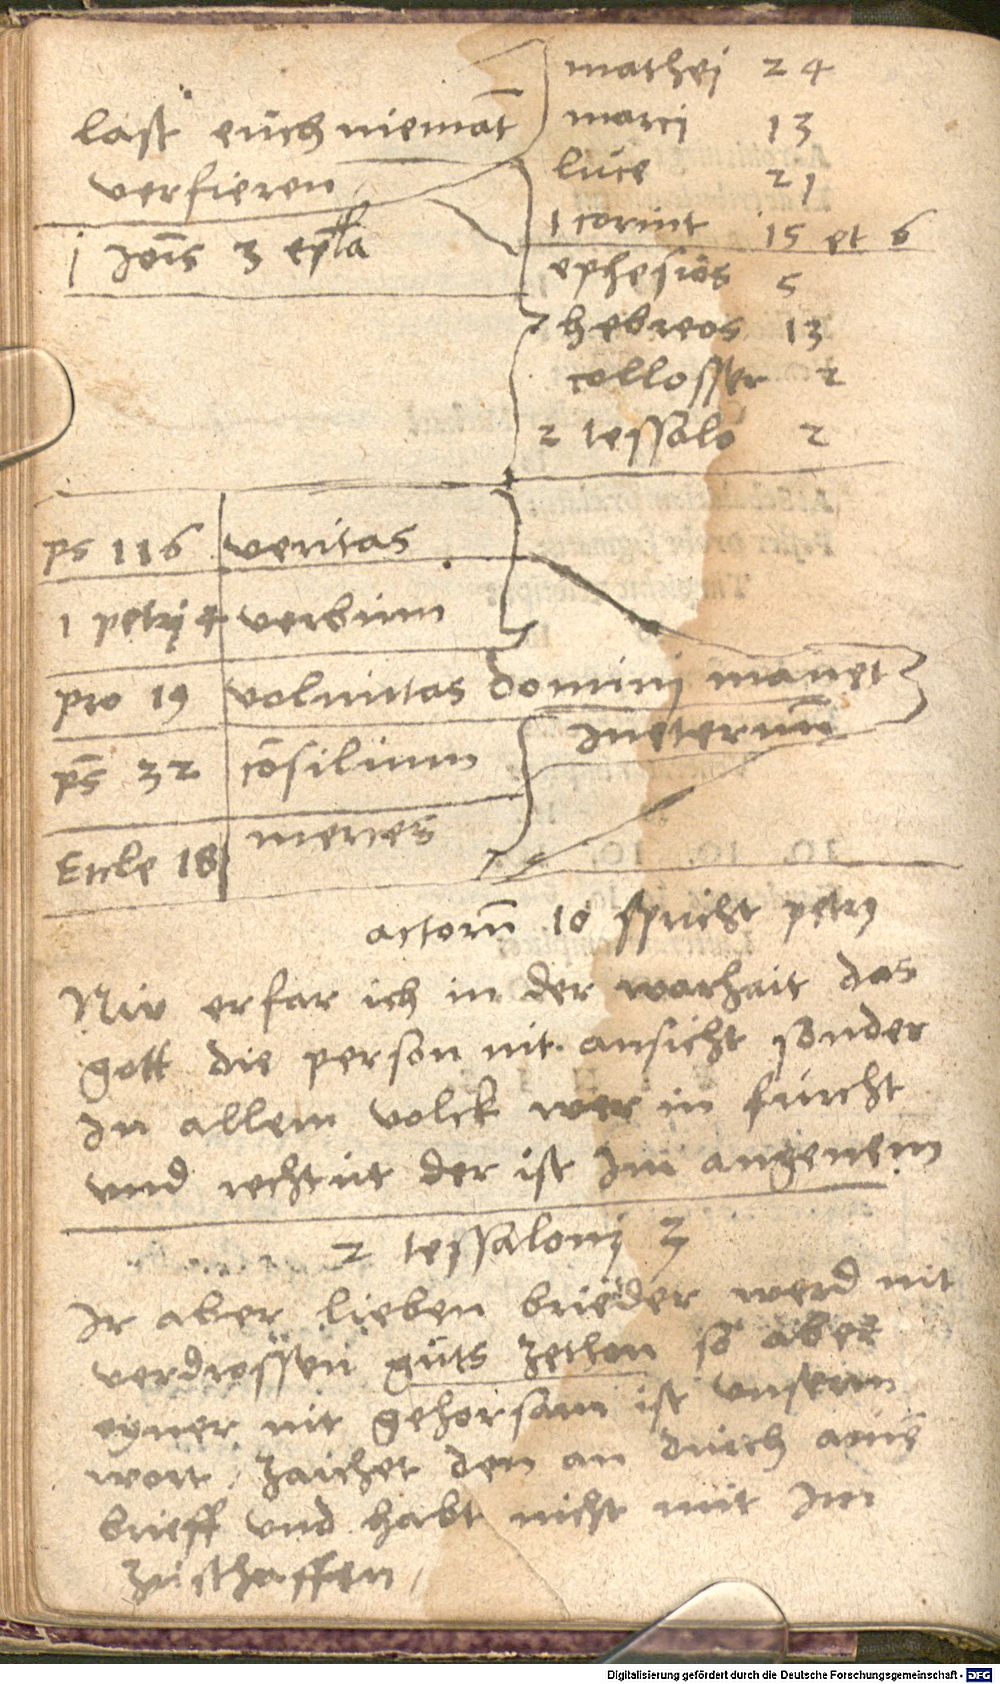 mathei 24
last euch niemāt
marci 13
verfieren
luce 21
1 corint 15 et 6
j Jōis 3 ep̄la
ephesiös 5
hebreos 13
collosser 2
2 tessalo 2
ps 116 veritas
1 petrij 4 verbum
pro 19 voluntas domini manet
ineternū̄m
ps 32 cōsilium
Eccle 18 mercies
actorū 10 spricht petrj
Nŭ erfar ich in der warhait das
gott die person nit ansicht sonder
In allem volck wer in furcht
und recht tŭt der ist Im angenem
2 tessalonj 3
Ir aber lieben brieder werd nit
verdrossen gŭts zethon so aber
eyner nit gehorsam ist unserm
wort, zaichet den an durch
brieff und habt nicht mit Im
zuschaffen,
Digitalisierung gefördert durch die Deutsche Forschungsgemeinschaft - DFG